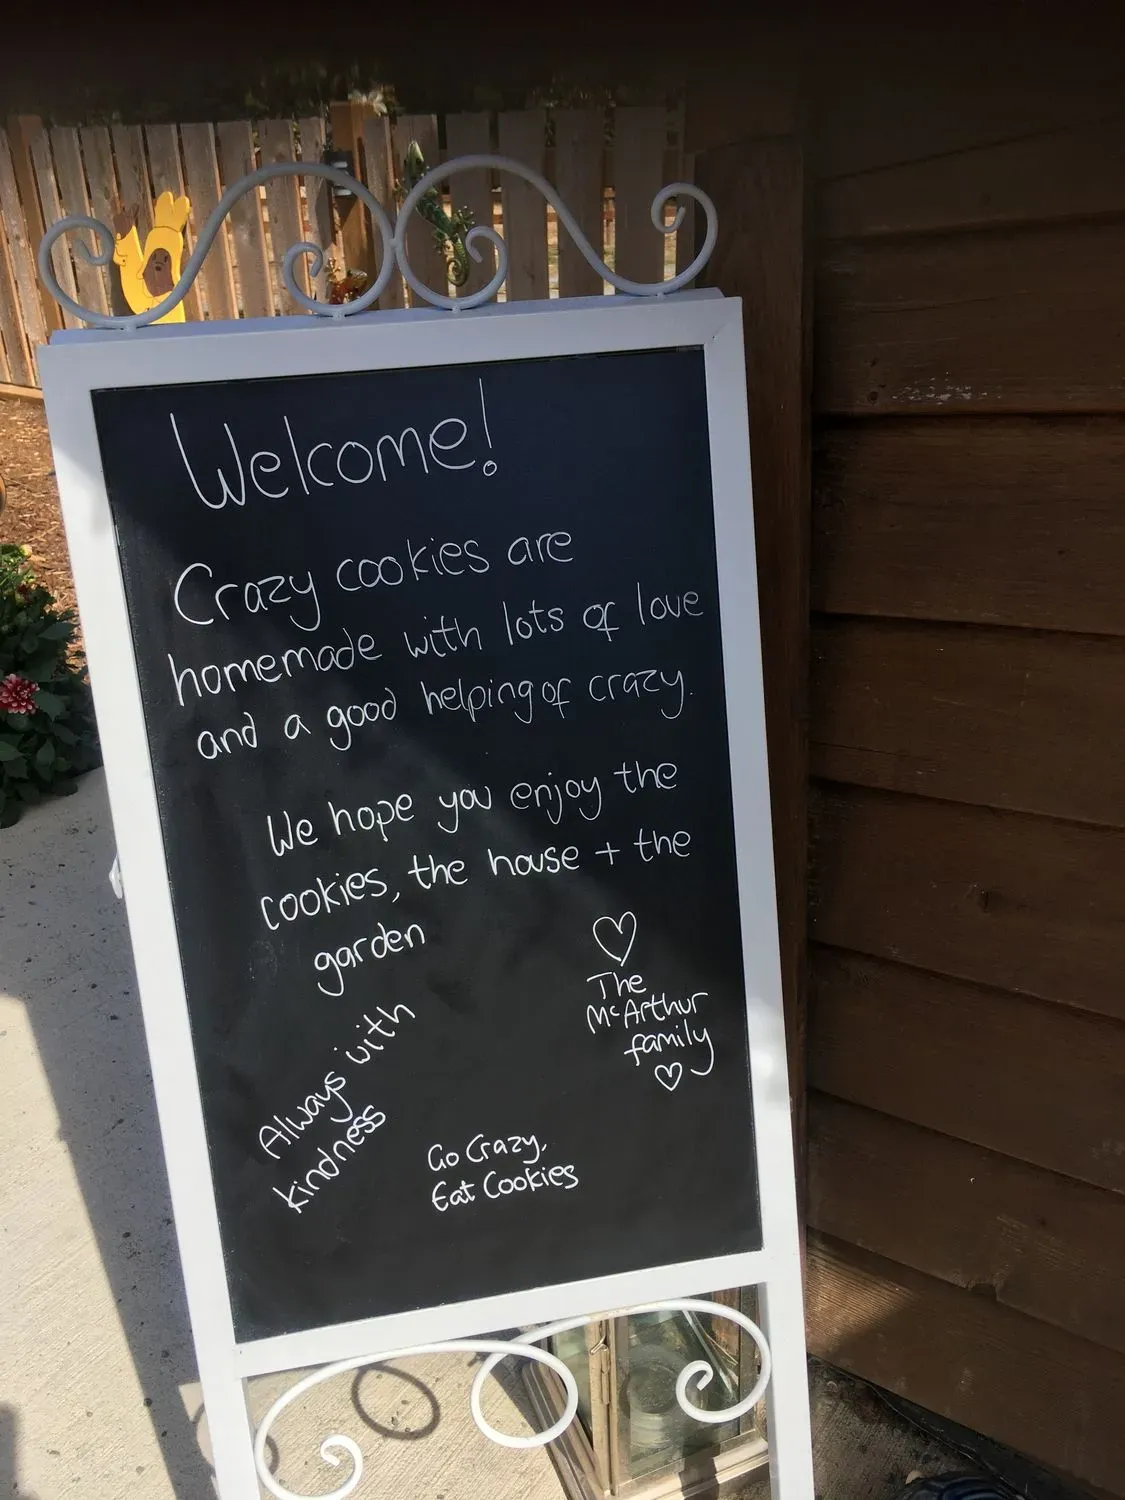 Welcome!
Crazy cookies are
homemade with lots of love
and a good helping of crazy.
We hope you enjoy the
cookies, the house + the
garden
♡
The
McArthur
family
♡
Always with
kindness
Go Crazy,
Eat Cookies